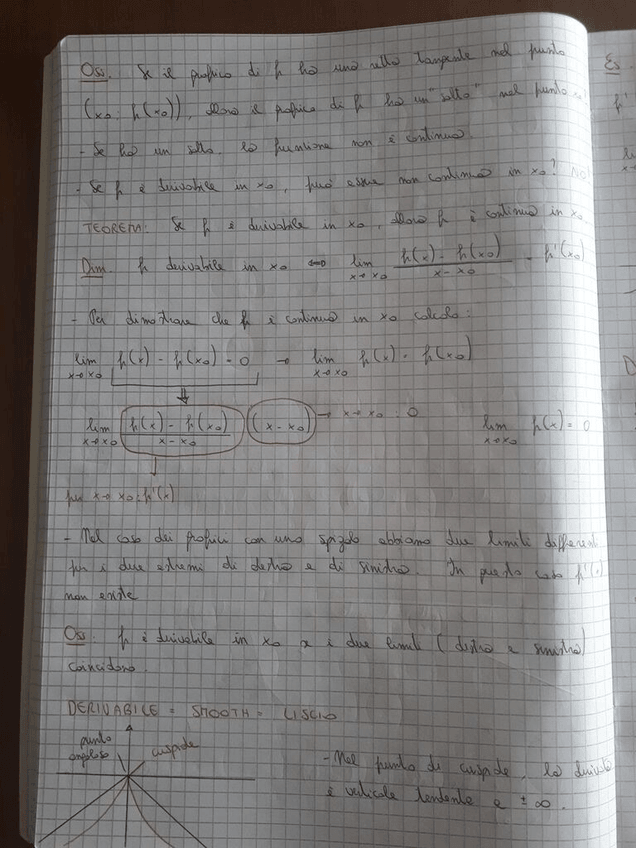 Oss. Se il grafico di f ha una retta tangente nel punto
(x0; f(x0)), allora il grafico di f ha un "salto" nel punto x0
- Se ha un salto, la funzione non è continua.
- Se f è derivabile in x0, può essere non continua in x0? NO!
TEOREMA: Se f è derivabile in x0, allora f è continua in x0
Dim. f derivabile in x0 <=> lim x→x0 (f(x) - f(x0))/(x - x0) = f'(x0)
- Per dimostrare che f è continua in x0 calcolo:
lim x→x0 f(x) - f(x0) = 0 → lim x→x0 f(x) = f(x0)
⇓
lim x→x0 (f(x) - f(x0))/(x - x0) (x - x0) → x→x0 : 0 lim x→x0 f(x) = 0
↓
per x→x0 : f'(x)
- Nel caso dei grafici con uno spigolo abbiamo due limiti different
per i due estremi di destra e di sinistra. In questo caso f'(x)
non esiste
Oss. f è derivabile in x0 se i due limiti (destra e sinistra)
coincidono.
DERIVABILE = SMOOTH = LISCIO
punto
angoloso
cuspide
- Nel punto di cuspide, la derivata
è verticale tendente a ± ∞.
Es.
f'